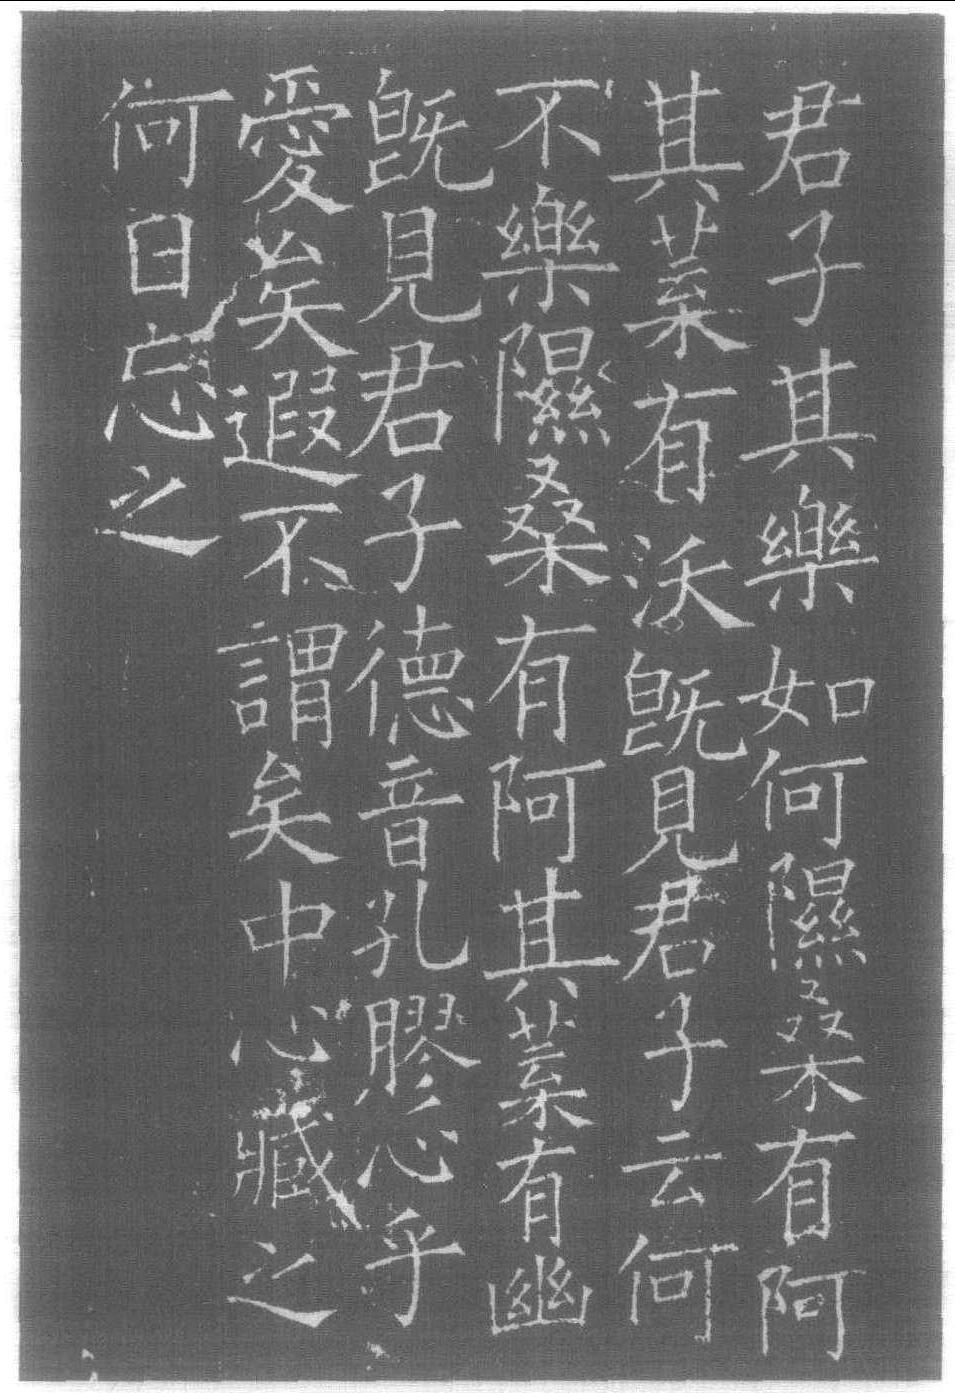 君子其樂如何隰桑有阿
其葉有沃既見君子云何
不樂隰桑有阿其葉有幽
既見君子德音孔膠心乎
愛矣遐不謂矣中心藏之
何日忘之